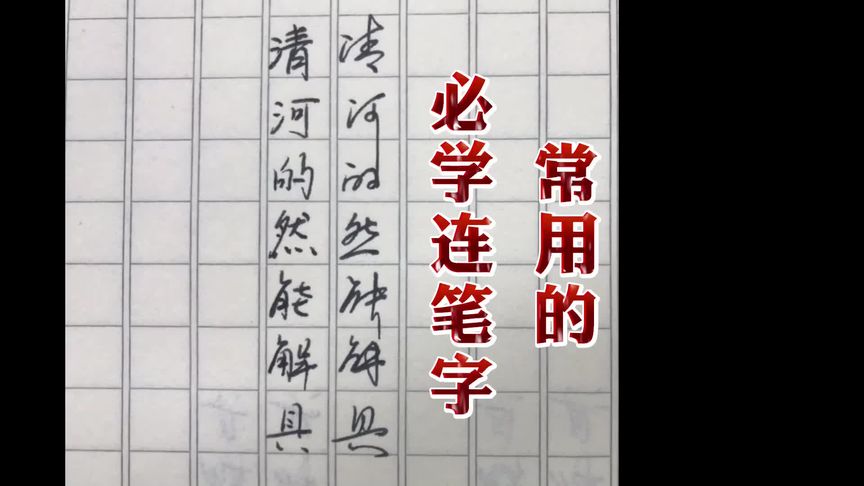 常用的
必学连笔字
清河的然能解具
清河的然能解具